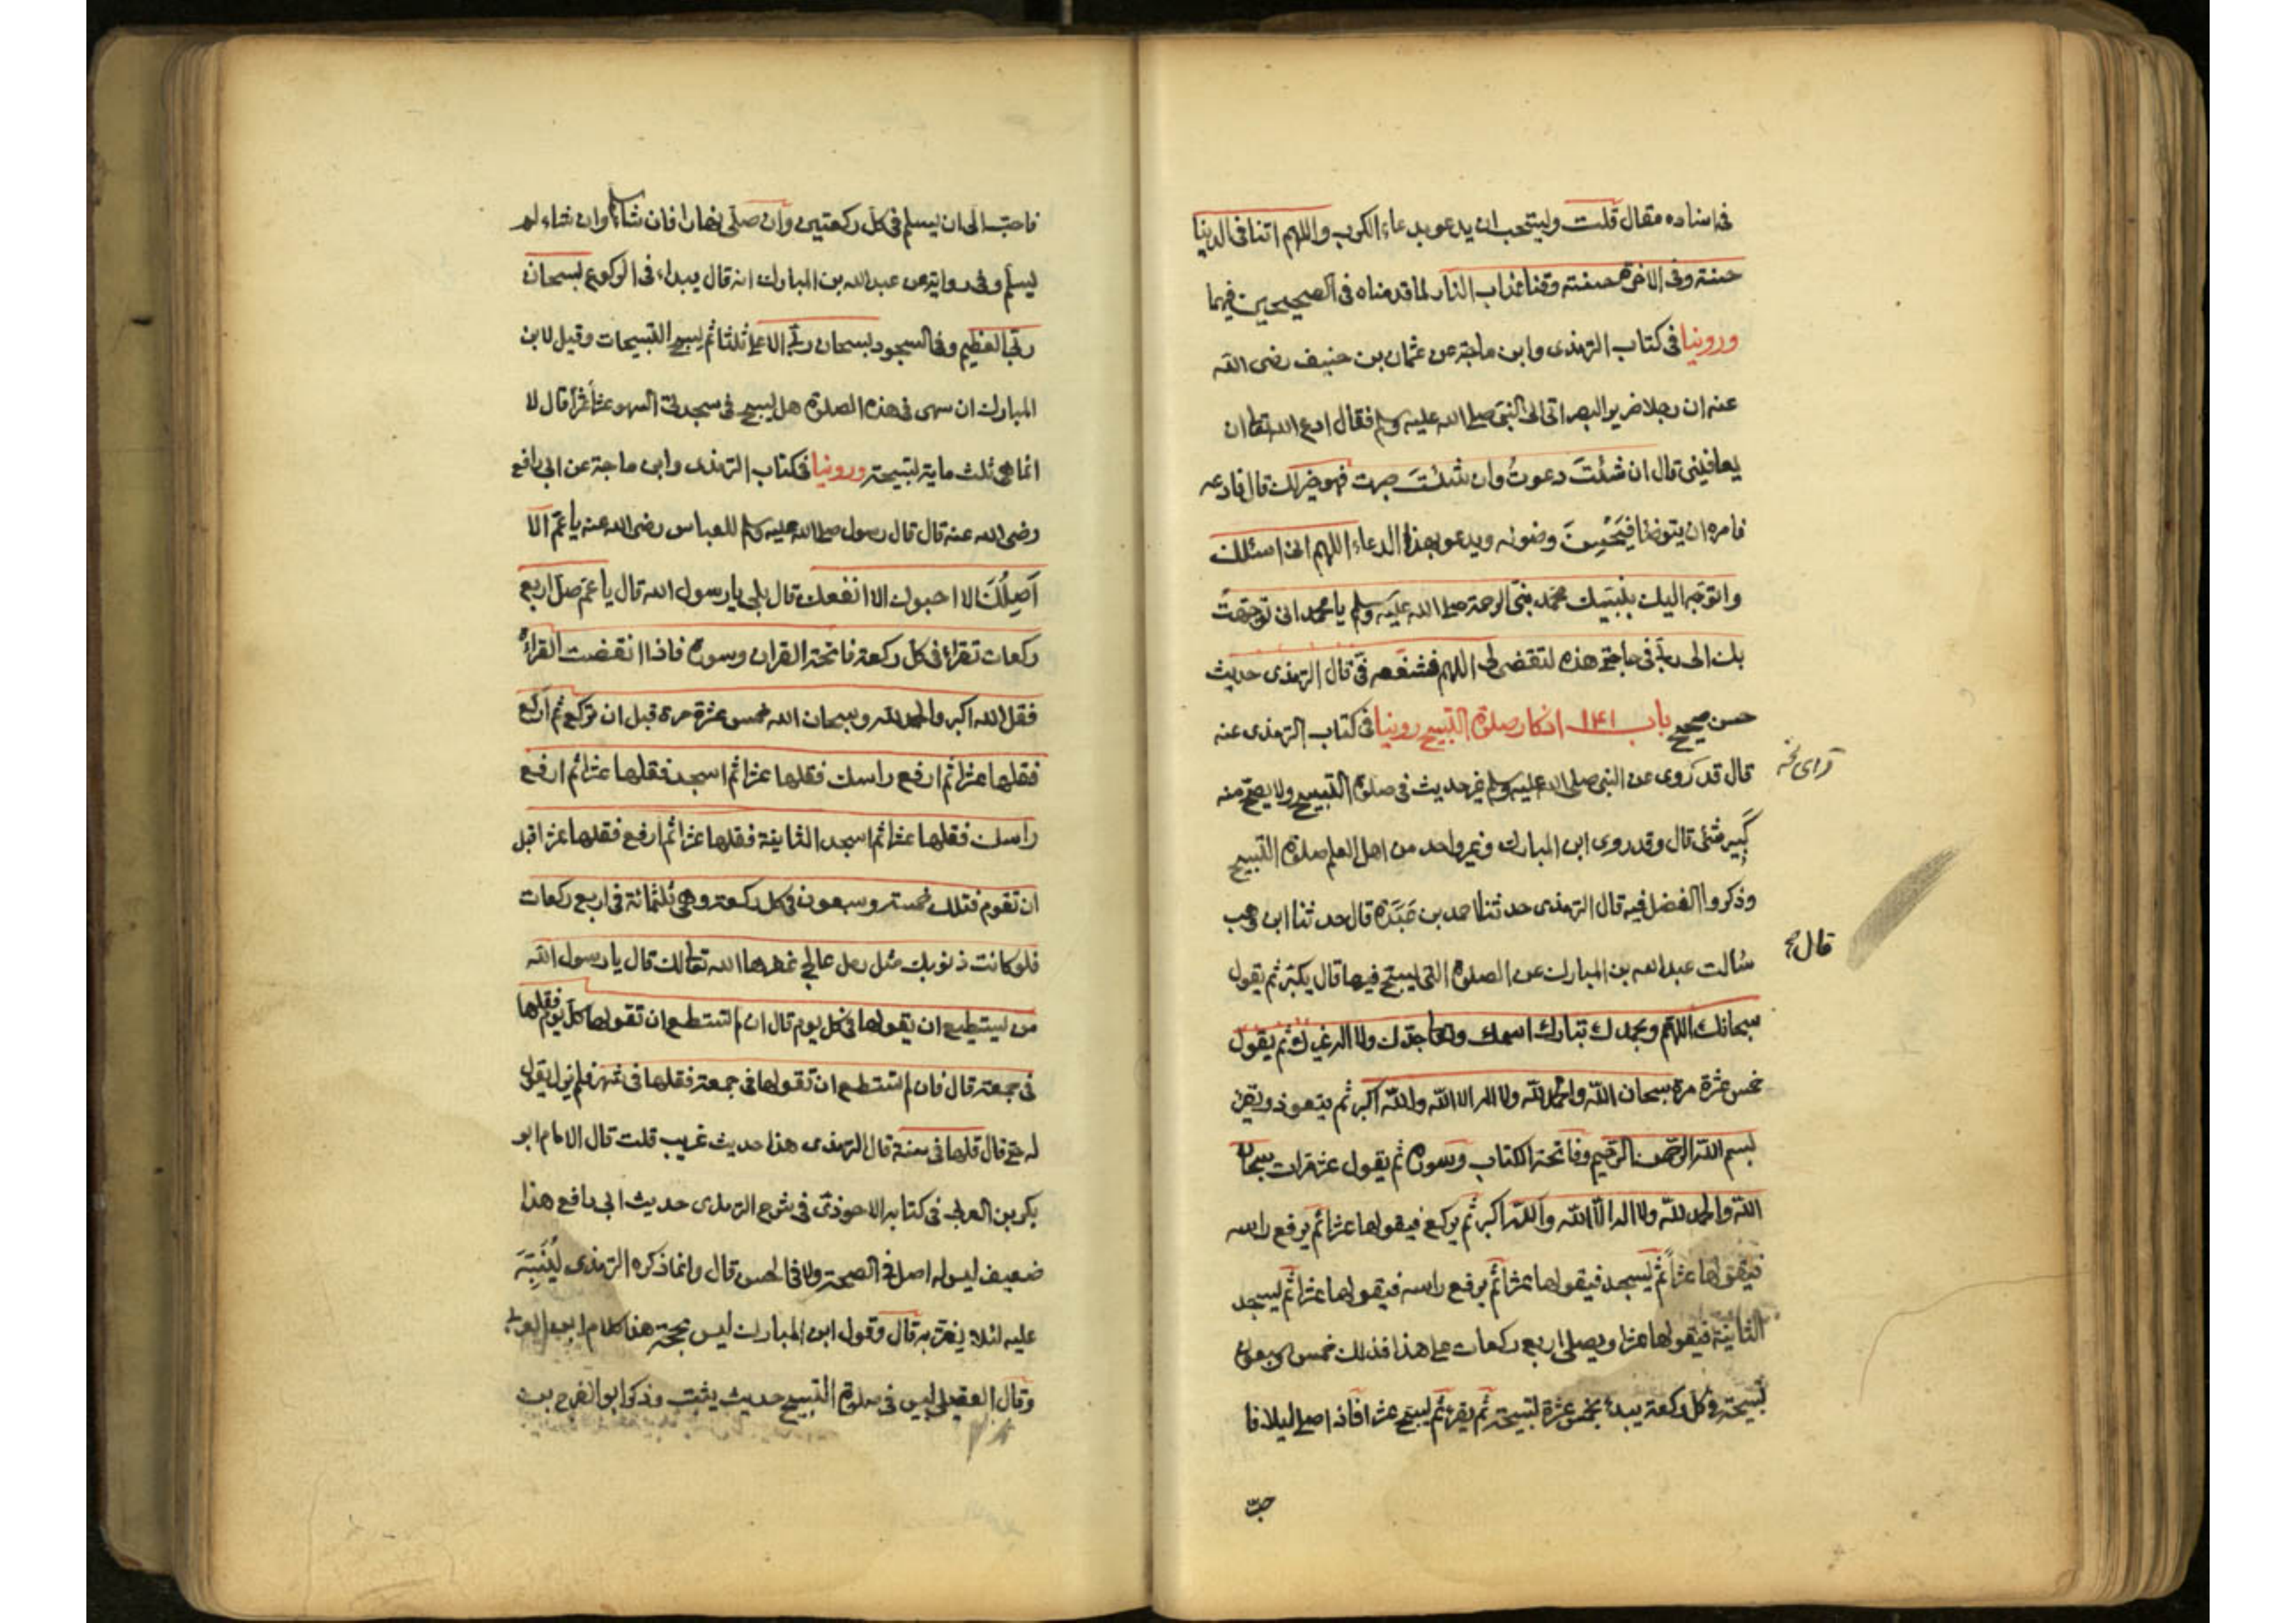 فى اسناده مقال قلت ويستحب ان يدعو بدعاء الكرب واللهم اتنا فى الدنيا
حسنة وفى الاخرة حسنة وقنا عذاب النار لما قدمناه فى الصحيحين فيهما
وروينا فى كتاب الترمذى وابن ماجة عن عثمان بن حنيف رضى الله
عنه ان رجلا ضرير البصر اتى الى النبى صلى الله عليه وسلم فقال ادع الله تعا ان
يعافينى قال ان شئتَ دعوتُ وان شئتَ صبرت فهو خير لك قال فادعه
فامره ان يتوضا فيُحْسِنَ وضوئه ويدعو بهذا الدعاء اللهم انى اسئلك
واتوجّه اليك بنبيك محمّد نبى الرحمة صلى الله عليه وسلم يا محمد انى توجّهتُ
بك الى ربّى فى حاجتى هذه لتقضى لى اللهم فشفعه فىّ قال الترمذى حديث
حسن صحيح باب ١٤١ اذكار صلوة التسبيح روينا فى كتاب الترمذى عنه
قال قد رُوى عن النبى صلى الله عليه وسلم غير حديث فى صلوة التسبيح ولا يصحّ منه
كبير شئ قال وقد روى ابن المبارك وغير واحد من اهل العلم صلوة التسبيح
وذكروا الفضل فيه قال الترمذى حدثنا احمد بن عَبَدَة قال حدثنا ابن وهب
قال صح
سُالت عبد الله بن المبارك عن الصلوة التى يسبّح فيها قال يكبّر ثم يقول
سبحانك اللهم وبحمدك تبارك اسمك وتعا جدّك ولا اله غيرك ثم يقول
خمس عشرة مرة سبحان الله والحمد لله ولا اله الا الله والله اكبر ثم يتعوذ ويقرء
بسم الله الرحمن الرحيم وفاتحة الكتاب وسورة ثم يقول عشر مرات سبحان
الله والحمد لله ولا اله الا الله والله اكبر ثم يركع فيقولها عشرا ثم يرفع راسه
فيقولها عشراً ثم يسجد فيقولها عشرا ثم يرفع راسه فيقولها عشرا ثم يسجد
الثانية فيقولها عشرا ويصلى اربع ركعات على هذا فذلك خمس وسبعون
تسبيحة فى كل ركعة يبدء بخمس عشرة تسبيحة ثم يقرء ثم يسبّح عشرا فاذا صلى ليلا فا
حبّ
فاحبّ الى ان يسلم فى كل ركعتين وان صلّى نهارا فان شاء سلم وان شاء لم
يسلّم وفى رواية عن عبد الله بن المبارك انه قال يبداء فى الركوع بسبحان
ربّى العظيم وفى السجود بسبحان ربّى الاعلى ثلثا ثم يسبح التسبيحات وقيل لابن
المبارك ان سهى فى هذه الصلوة هل يسبح فى سجدتى السهو عشراً عشراً قال لا
انما هى ثلث ماية تسبيحة وروينا فى كتاب الترمذى وابن ماجة عن ابى رافع
رضى الله عنه قال قال رسول صلى الله عليه وسلم للعباس رضى الله عنه يا عمّ الا
اَصِلُكَ الا احبوك الا انفعك قال بلى يا رسول الله قال يا عمّ صلّ اربع
ركعات تقراء فى كل ركعة فاتحة القران وسورة فاذا انقضت القراءة
فقل الله اكبر والحمد لله وسبحان الله خمس عشرة مرة قبل ان تركع ثم اركع
فقلها عشرا ثم ارفع راسك فقلها عشرا ثم اسجد فقلها عشرا ثم ارفع
راسك فقلها عشرا ثم اسجد الثانية فقلها عشرا ثم ارفع فقلها عشرا قبل
ان تقوم فتلك خمسة وسبعون فى كل ركعة وهى ثلثمائة فى اربع ركعات
فلو كانت ذنوبك مثل رمل عالج غفرها الله تعالى لك قال يا رسول الله
من يستطيع ان يقولها فى كل يوم قال ان لم تستطع ان تقولها كل يوم فقلها
فى جمعة قال فان لم تستطع ان تقولها فى جمعة فقلها فى شهر فلم يزل يقول
له حتى قال قلها فى سنة قال الترمذى هذا حديث غريب قلت قال الامام ابو
بكر بن العربى فى كتابه الاحوذى فى شرح الترمذى حديث ابى رافع هذا
ضعيف ليس له اصل فى الصحة ولا فى الحسن قال وانما ذكره الترمذى ليُنَبِّهَ
عليه لئلا يغترّ به قال وقول ابن المبارك ليس بحجّة هذا كلام ابى بكر العربى
وقال العقيلى ليس فى صلوة التسبيح حديث يثبت وذكر ابو الفرج بن